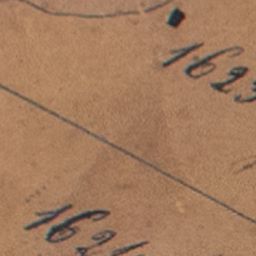 1623
162